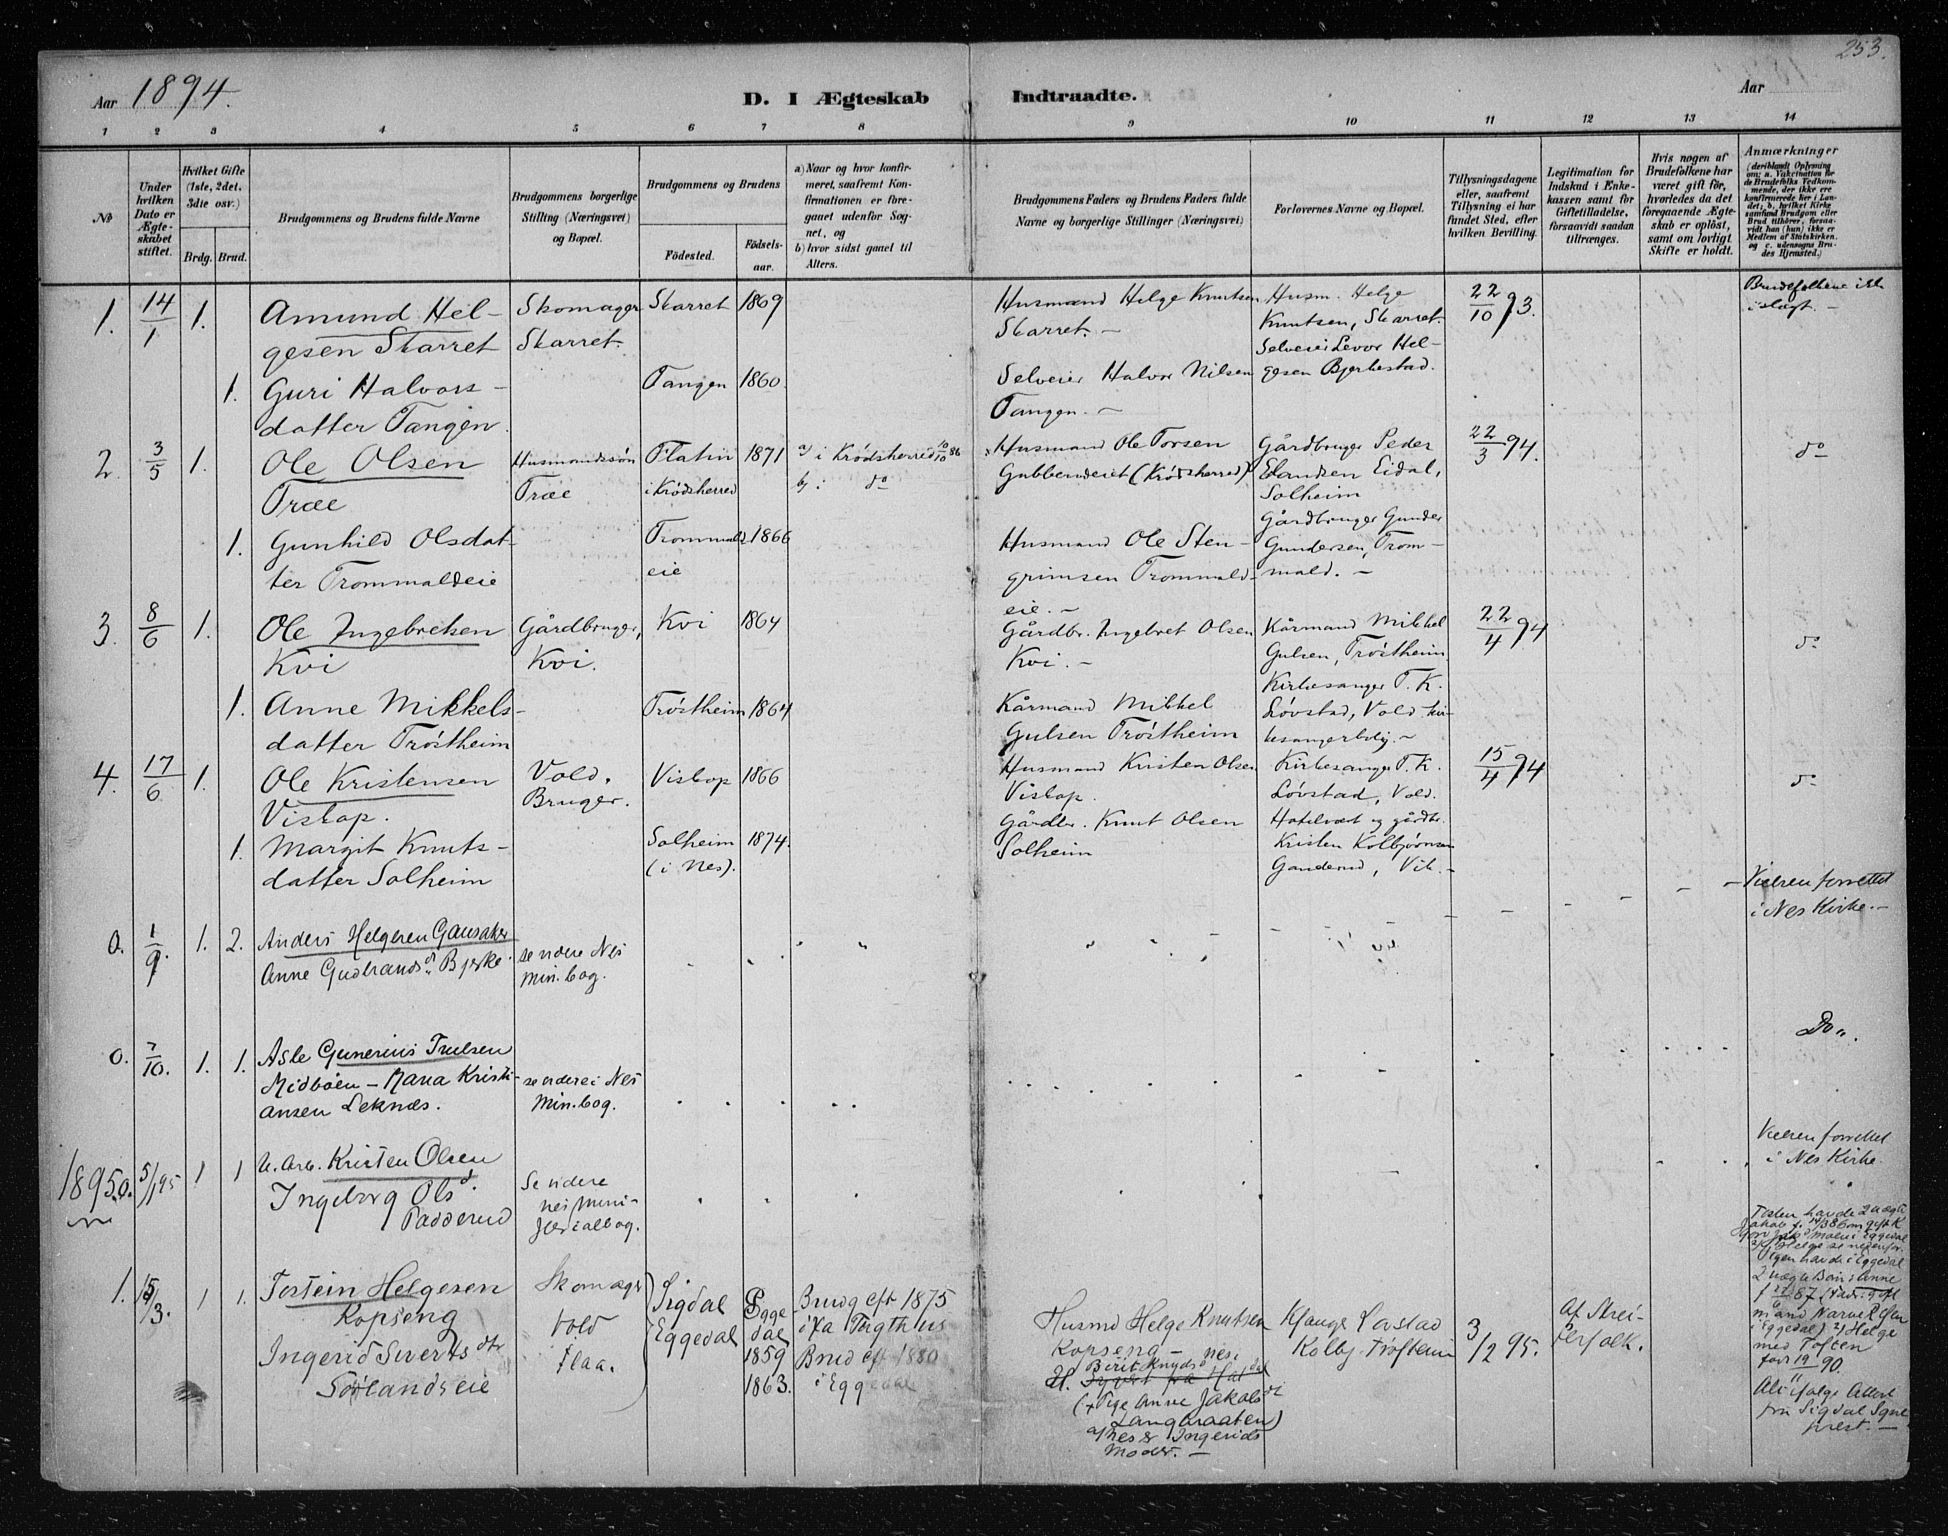 253.
Aar 1894.
D. I Ægteskab Indtraadte.
Aar
1 2 3 4 5 6 7 8 9 10 11 12 13 14
No
Under hvilken Dato er Ægteskabet stiftet.
Hvilket Gifte (1ste, 2det, 3die osv.)
Brdg. Brud.
Brudgommens og Brudens fulde Navne
Brudgommens borgerlige Stilling (Næringsvei) og Bopæl.
Brudgommens og Brudens
Födested.
Födselsaar.
a) Naar og hvor konfirmeret, saafremt Konfirmationen er foregaaet udenfor Sognet, og
b) hvor sidst gaaet til Alters.
Brudgommens Faders og Brudens Faders fulde Navne og borgerlige Stillinger (Næringsvei)
Forlovernes Navne og Bopæl.
Tillysningsdagene eller, saafremt Tillysning ei har fundet Sted, efter hvilken Bevilling.
Legitimation for Indskud i Enkekassen samt for Giftetilladelse, forsaavidt saadan tiltrænges.
Hvis nogen af Brudefolkene har været gift för, hvorledes da det foregaaende Ægteskab er oplöst, samt om lovligt Skifte er holdt.
Anmærkninger
(deriblandt Oplysning om: a. Vakcination for de Brudefolks Vedkommende, der ikke ere konfirmerede her i Landet; b. hvilket Kirkesamfund Brudgom eller Brud tilhörer, forsaavidt han (hun) ikke er Medlem af Statskirken. og c. udensogns Brudes Hjemsted.)
1. 14/1 1. Amund Helgesen Skarret
Skomager Skarret.
Skarret 1869
Husmand Helge Knutsen Skarret. –
Husm. Helge Knutsen, Skarret.
Selveier Levor Helgesen Bjerkestad.
22/10 93.
Brudefolkene ikke i slægt. –
1. Guri Halvorsdatter Tangen.
Tangen 1860.
Selveier Halvor Nilsen Tangen. –
2. 3/5 1. Ole Olsen Træe
Husmandssøn Træe
Flatin i Krødsherred 1871
a) i Krødsherred 10/10 86
b) i do
Husmand Ole Torsen Gubberudeiet (Krødsherred)
Gårdbruger Peder Elandsen Eidal, Solheim
Gårdbruger Gunder Gundersen, Trommald. –
22/3 94.
do
1. Gunhild Olsdatter Trommaldeie
Trommaldeie 1866
Husmand Ole Stengrimsen Trommaldeie. –
3. 8/6 1. Ole Ingebretsen Kvi
Gårdbruger, Kvi.
Kvi 1864
Gårdbr. Ingebret Olsen Kvi. –
Kårmand Mikkel Gulsen, Trøstheim
Kirkesanger T. K. Løvstad, Vold kirkesangerbolig. –
22/4 94
do
1. Anne Mikkelsdatter Trøstheim
Trøstheim 1864
Kårmand Mikkel Gulsen Trøstheim
4. 17/6 1. Ole Kristensen Viskop.
Vold. Bruger.
Viskop 1866
Husmand Kristen Olsen Viskop.
Kirkesanger T. K. Løvstad, Vold.
Hotelvært og gårdbr. Kristen Kolbjørnsen Ganderud, Vik. –
15/4 94
do
1. Margit Knutsdatter Solheim
Solheim (i Nes). 1874.
Gårdbr. Knut Olsen Solheim
0. 1/9 1. 2. Anders Helgesen Gausaker
Anne Gudbrandsd. Bjerke.
se videre Nes Min.bog.
Vielsen forrettet i Nes Kirke. –
0. 7/10. 1. 1. Asle Gunerius Trulsen Midbøen – Rana Kristiansen Leknæs.
se videre i Nes Min.bog.
Do.
1895. 0. 5/1 95 1 1 U. Arb. Kristen Olsen
Ingeborg Olsd. Padderud
Se videre Nes Ministerialbog.
Vielsen forrettet i Nes Kirke.
1. 15/3. 1 1. Tostein Helgesen Kopseng
Ingerid Siverts dtr Sørlandseie
Skomager Vold Flaa.
Sigdal Eggedal
Eggedal 1859 1863.
Brudg eft 1875
Brud eft 1880 i Eggedal
Husmd Helge Knutsen Kopseng – Nes:
Berit Knuds
(+ Pige Anne Jakobsdt Langbraaten)
Ingerids Moder. –
Klange Løvstad
Kolbj Trøstheim
3/2 95.
Af Streiferfolk.
Tosten havde 2 uægte
Helge se nedenfor
havde i Eggedal
2 uægte Børn: Anne
i Eggedal) 2) Helge
med Tosten
født 19/11 90.
Alt ifølge Attest fra Sigdal Sogneprest. –